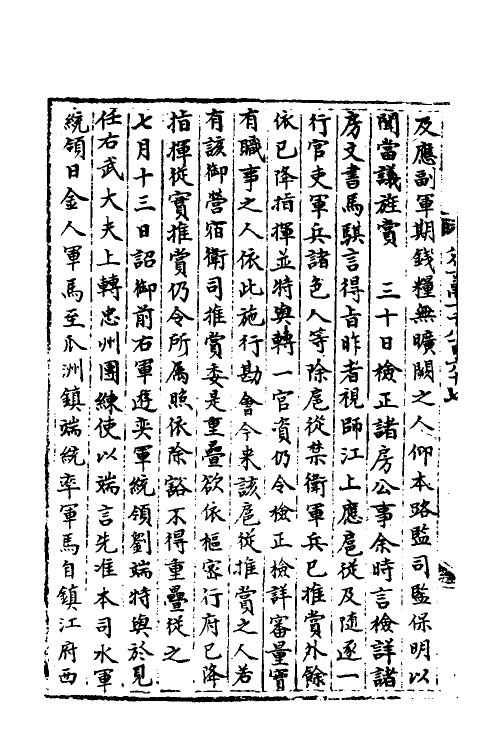 及應副軍期錢糧無曠闕之人仰本路監司監保明以
聞當議旌賞　三十日檢正諸房公事余時言檢詳諸
房文書馬騏言得旨昨者視師江上應扈從及隨逐一
行官吏軍兵諸色人等除扈從禁衛軍兵已推賞外餘
依已降指揮並特與轉一官資仍令檢正檢詳審量實
有職事之人依此施行勘會今來該扈從推賞之人若
有該御營宿衛司推賞委是重疊欲依樞密行府已降
指揮從實推賞仍令所属照依除豁不得重疊從之
七月十三日詔御前右軍遊奕軍統領劉端特與於見
任右武大夫上轉忠州團練使以端言先准本司水軍
統領日金人軍馬至瓜洲鎮端統率軍馬自鎮江府西